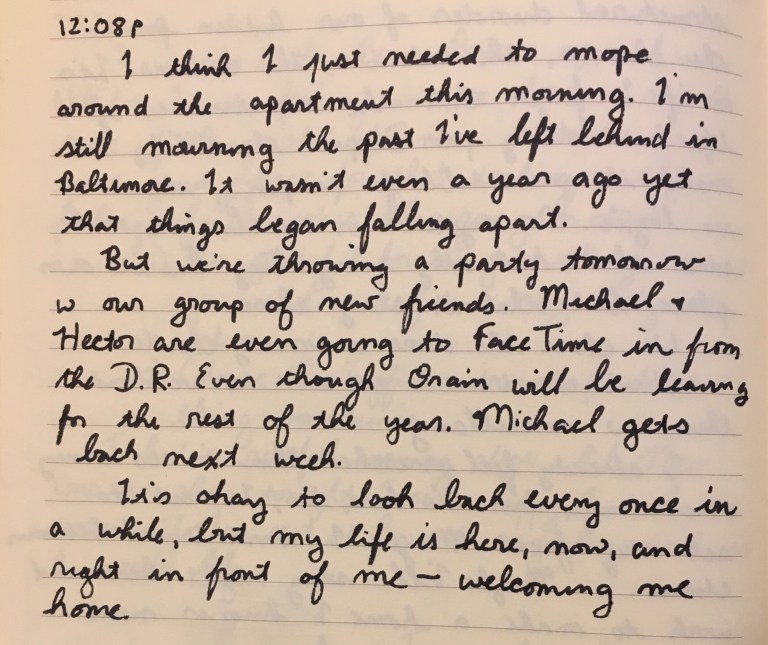 12:08P
I think I just needed to mope
around the apartment this morning. I'm
still mourning the past I've left behind in
Baltimore. It wasn't even a year ago yet
that things began falling apart.
But we're throwing a party tomorrow
w our group of new friends. Michael +
Hector are even going to FaceTime in from
the D.R. Even though Orain will be leaving
for the rest of the year. Michael gets
back next week.
It's okay to look back every once in
a while, but my life is here, now, and
right in front of me — welcoming me
home.